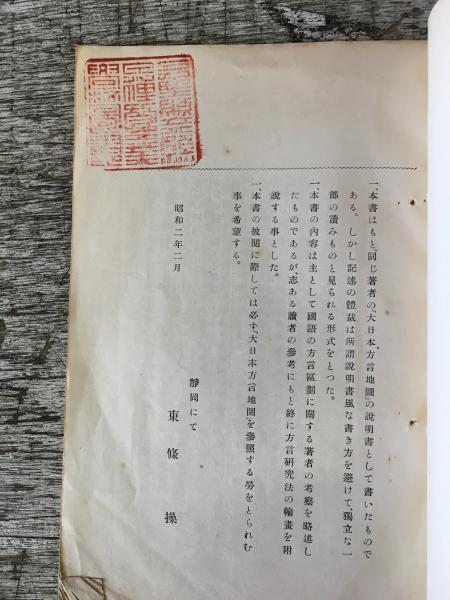 一、本書はもと、同じ著者の「大日本方言地圖」の說明書として書いたもので
ある。しかし記述の體裁は所謂說明書風な書き方を避けて、獨立な一
部の讀みものと見られる形式をとつた。
一、本書の內容は主として國語の方言區劃に關する著者の考察を略述し
たものであるが、志ある讀者の參考にもと終に方言硏究法の輪畫を附
說する事とした。
一、本書の披閱に際しては必ず「大日本方言地圖」を參照する勞をとられむ
事を希望する。
昭和二年二月
靜岡にて
東條操